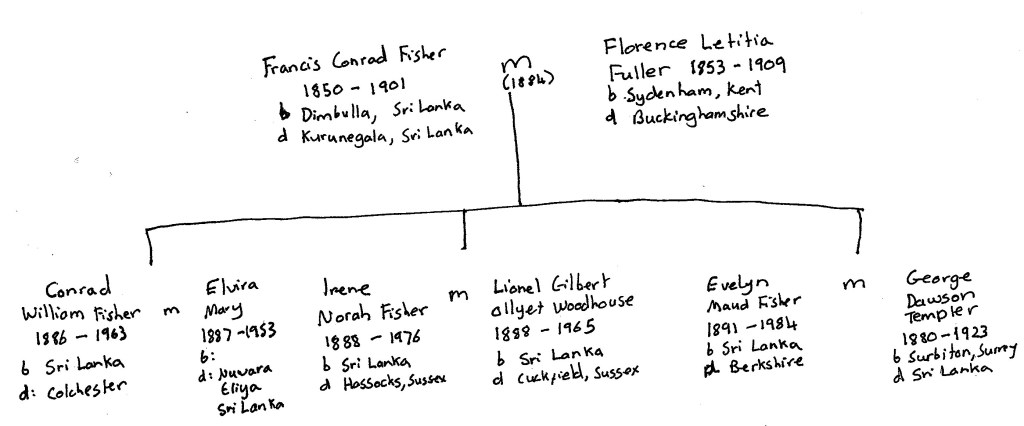 Francis Conrad Fisher
1850 - 1901
b Dimbulla, Sri Lanka
d Kurunegala, Sri Lanka
m
(1884)
Florence Letitia
Fuller 1853 - 1909
b Sydenham, Kent
d Buckinghamshire
Conrad
William Fisher
1886 - 1963
b Sri Lanka
d: Colchester
m
Elvira
Mary
1887 - 1953
b:
d: Nuwara
Eliya
Sri Lanka
Irene
Norah Fisher
1888 - 1976
b Sri Lanka
d Hassocks, Sussex
m
Lionel Gilbert
Ollyet Woodhouse
1888 - 1965
b Sri Lanka
d Cuckfield, Sussex
Evelyn
Maud Fisher
1891 - 1984
b Sri Lanka
d Berkshire
m
George
Dawson
Templer
1880 - 1923
b Surbiton, Surrey
d Sri Lanka